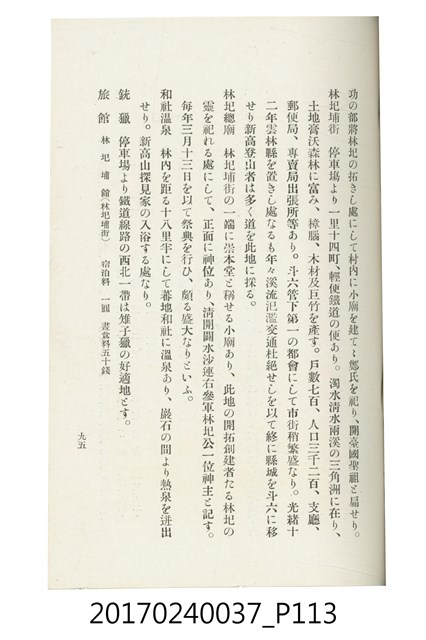 功の部將林圮の拓きし處にして村內に小廟を建てゝ鄭氏を祀り、開臺國聖祖と扁せり。
林圮埔街　停車場より一里十四町、輕便鐵道の便あり。濁水淸水兩溪の三角洲に在り、
土地膏沃森林に富み、樟腦、木材及巨竹を產す。戶數七百、人口三千二百、支廳、
郵便局、專賣局出張所等あり。斗六管下第一の都會にして市街稍繁盛なり。光緒十
二年雲林縣を置きし處なるも年々溪流氾濫交通杜絕せしを以て終に縣城を斗六に移
せり新高登山者は多く道を此地に採る。
林圮總廟　林圮埔街の一端に崇本堂と稱せる小廟あり、此地の開拓創建者たる林圮の
靈を祀れる處にして、正面に神位あり、淸開闢水沙連右參軍林圮公一位神主と記す。
每年三月十三日を以て祭典を行ひ、頗る盛大なりといふ。
和社溫泉　林內を距る十八里半にして蕃地和社に溫泉あり、巖石の間より熱泉を迸出
せり。新高山探見家の入浴する處なり。
銃獵　停車場より鐵道線路の西北一帶は雉子獵の好適地とす。
旅館　林圮埔館（林圮埔街）　宿泊料　一圓　晝食料五十錢
九五
20170240037_P113